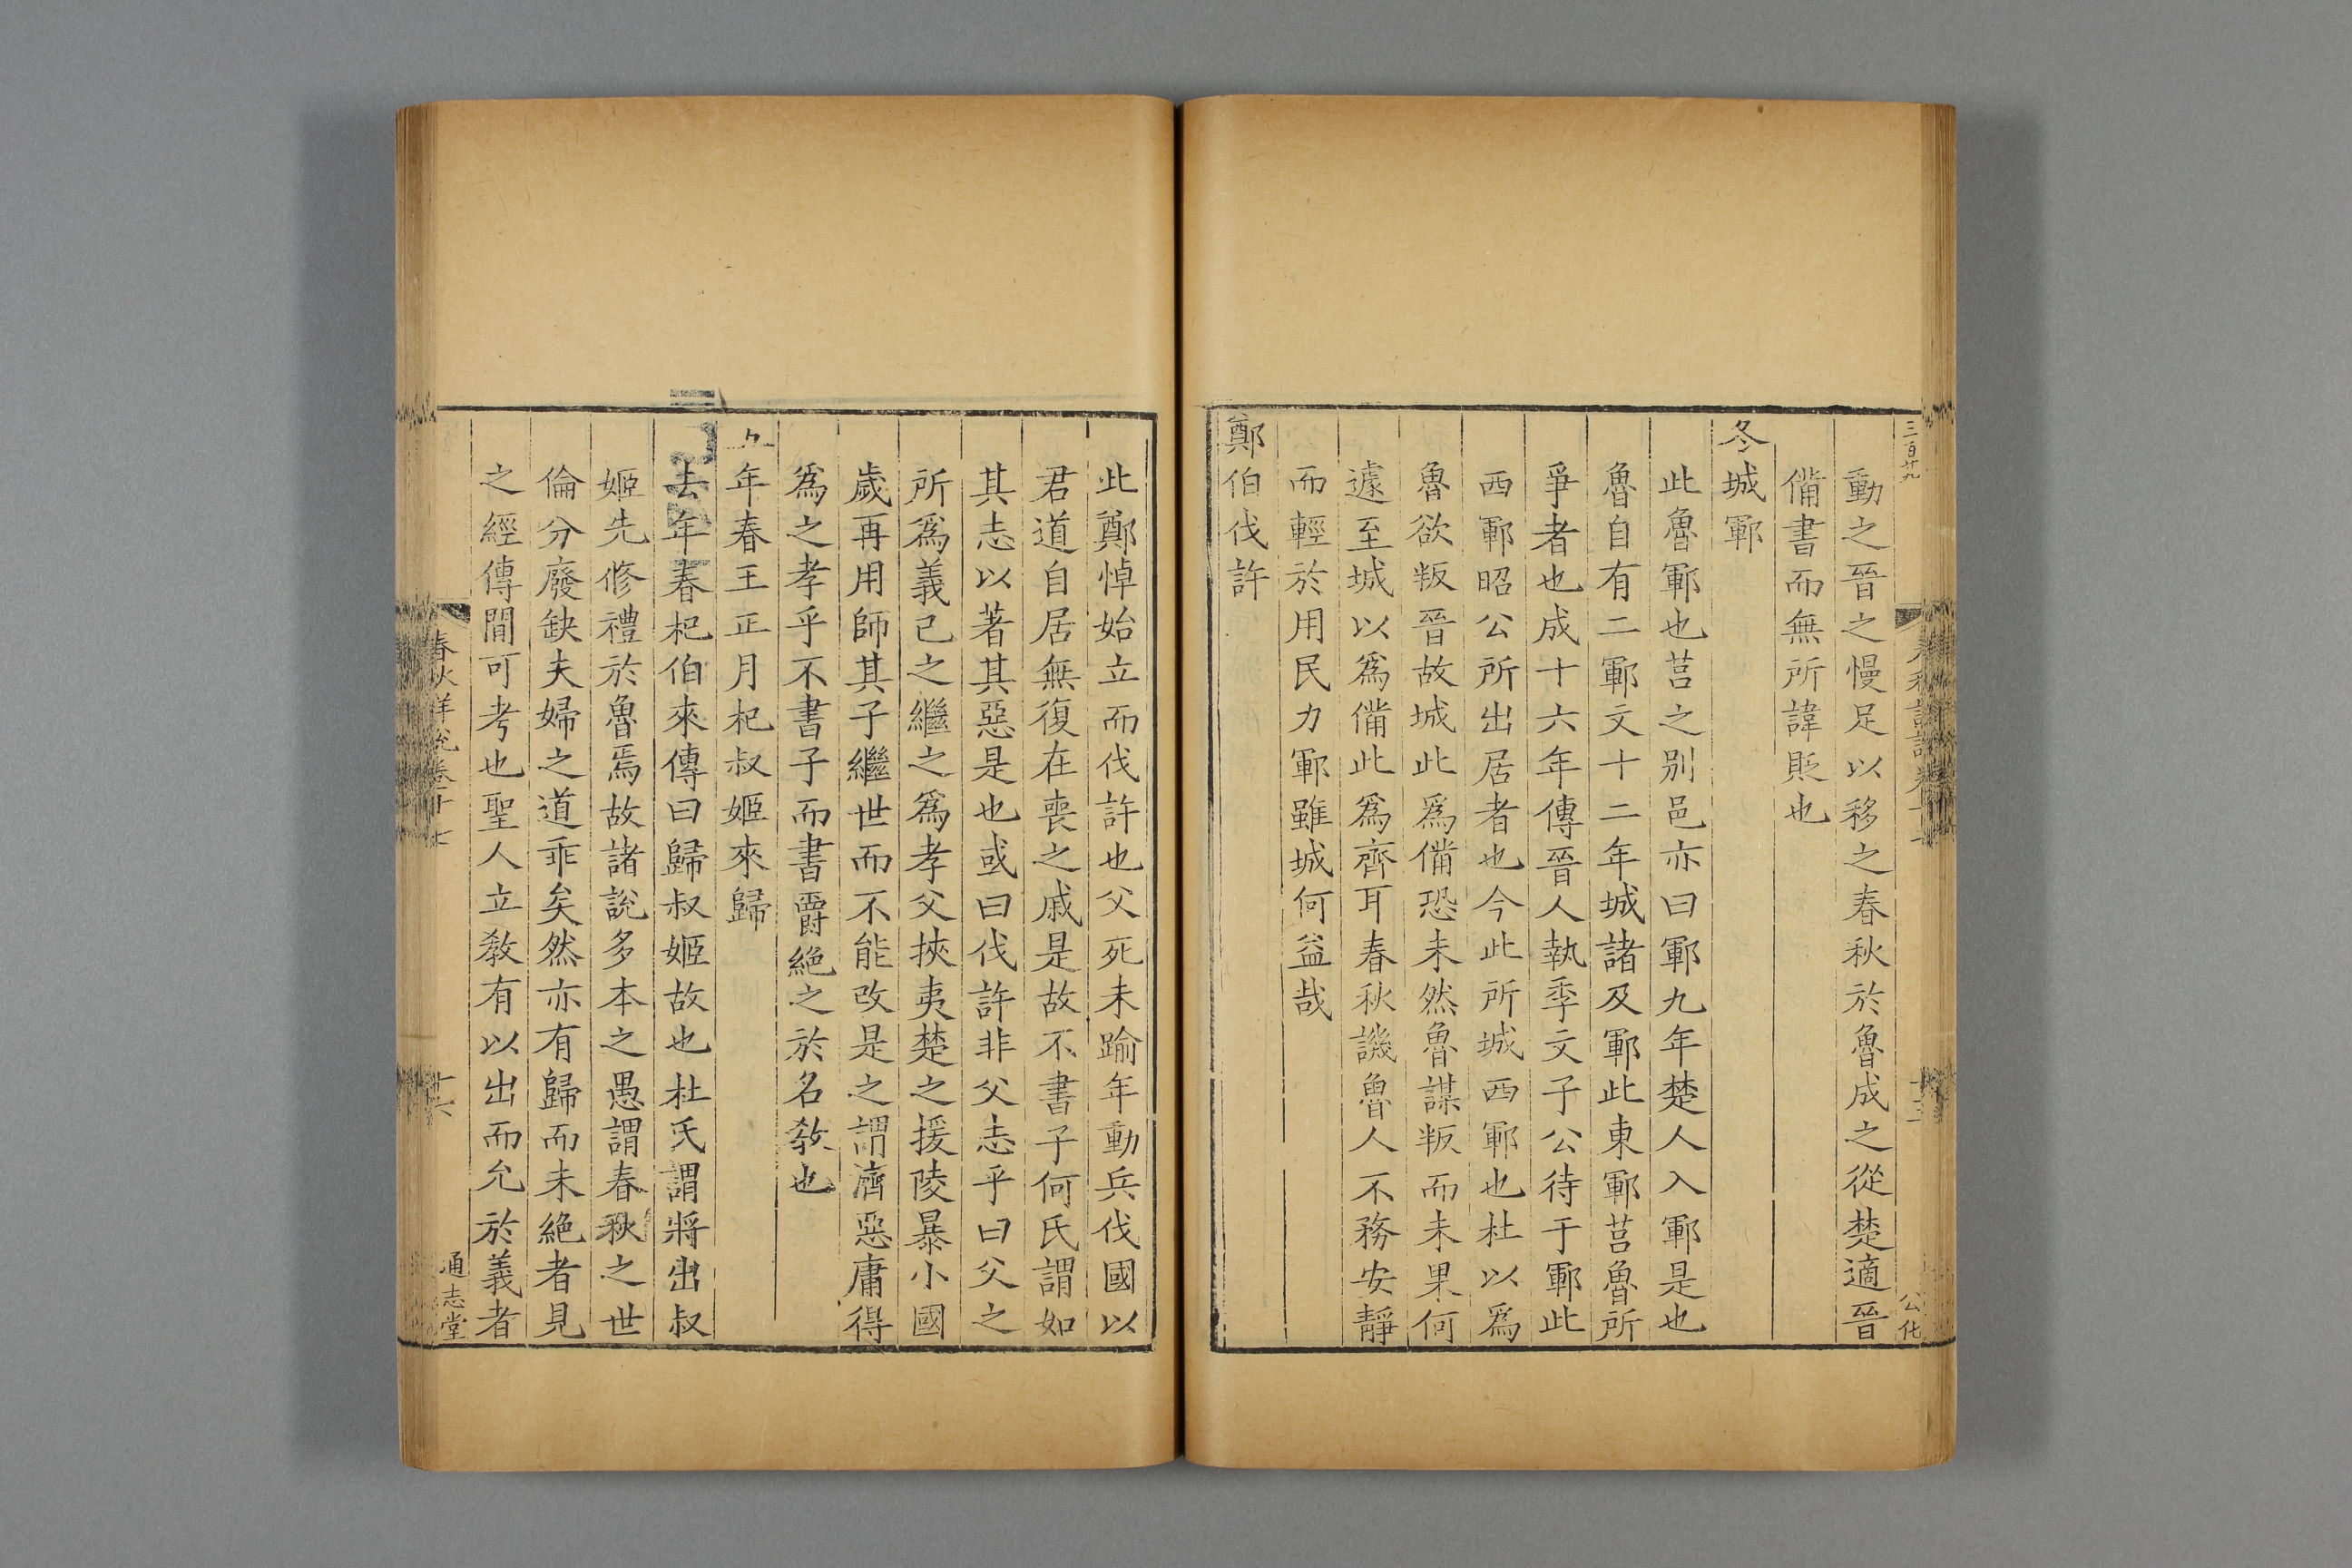 三百廿九
動之晉之慢足以移之春秋於魯成之從楚適晉
備書而無所諱貶也
冬城鄆
此魯鄆也莒之别邑亦曰鄆九年楚人入鄆是也
魯自有二鄆文十二年城諸及鄆此東鄆莒魯所
爭者也成十六年傳晉人執季文子公待于鄆此
西鄆昭公所出居者也今此所城西鄆也杜以爲
魯欲叛晉故城此爲備恐未然魯謀叛而未果何
遽至城以爲備此爲齊耳春秋譏魯人不務安靜
而輕於用民力鄆雖城何益哉
鄭伯伐許
此鄭悼始立而伐許也父死未踰年動兵伐國以
君道自居無復在喪之戚是故不書子何氏謂如
其志以著其惡是也或曰伐許非父志乎曰父之
所爲義己之繼之爲孝父挾夷楚之援陵暴小國
歲再用師其子繼世而不能改是之謂濟惡庸得
爲之孝乎不書子而書爵絶之於名教也
年春王正月杞叔姬來歸
去年春杞伯來傳曰歸叔姬故也杜氏謂將出叔
姬先修禮於魯焉故諸說多本之愚謂春秋之世
倫分廢缺夫婦之道乖矣然亦有歸而未絶者見
之經傳間可考也聖人立教有以出而允於義者
春秋詳說卷十七
通志堂